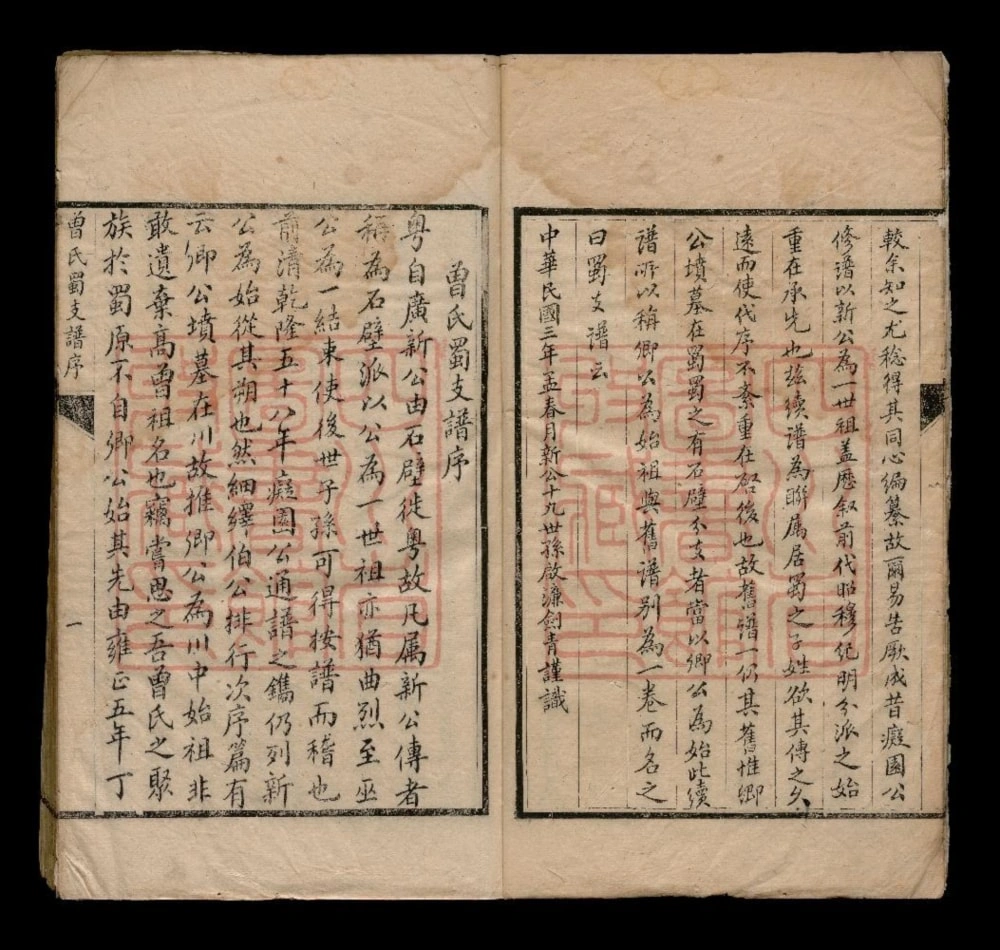 較余知之尤稔得其同心編纂故爾易告厥成昔癡園公
修譜以新公為一世祖盖歷叙前代昭穆紀明分派之始
重在承先也玆續譜為聯属居蜀之子姓欲其傳之久
遠而使代序不紊重在啓後也故舊譜一仍其舊惟卿
公墳墓在蜀蜀之有石壁分支者當以卿公為始此續
譜所以稱卿公為始祖與舊譜別為一卷而名之
曰蜀支譜云
中華民國三年孟春月新公十九世孫啟濂劍青謹識
曾氏蜀支譜序
粤自廣新公由石壁徙粤故凡属新公傳者
稱為石壁派以公為一世祖亦猶曲烈至巫
公為一結束使後世子孫可得按譜而稽也
前清乾隆五十八年癡園公通譜之鐫仍列新
公為始從其朔也然細繹伯公排行次序篇有
云卿公墳墓在川故推卿公為川中始祖非
敢遺棄高曾祖名也竊嘗思之吾曾氏之聚
族於蜀原不自卿公始其先由雍正五年丁
曾氏蜀支譜序
一